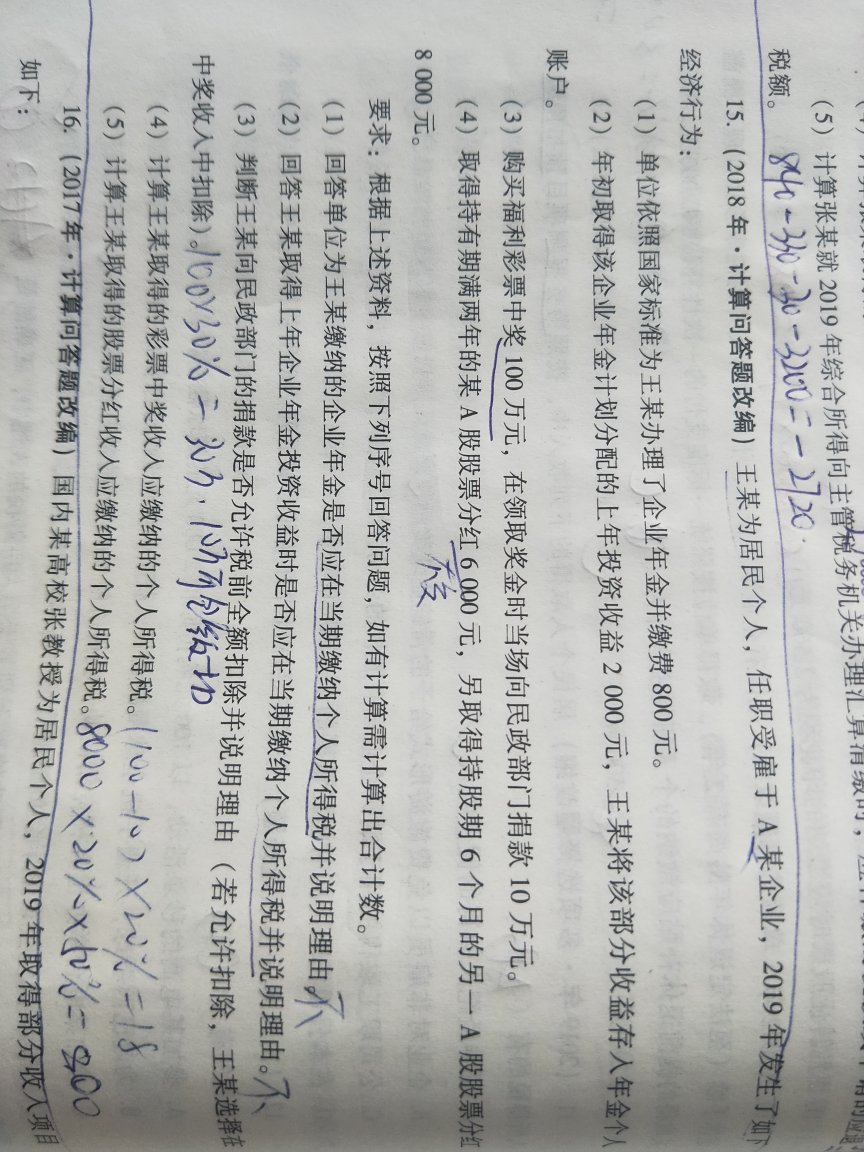 (5) 计算张某就 2019 年综合所得向主管税务机关办理汇算清缴时，
税额。 840-330-30-3200=-2720.
15. (2018 年·计算问答题改编) 王某为居民个人，任职受雇于 A 某企业，2019 年发生了如下
经济行为：
(1) 单位依照国家标准为王某办理了企业年金并缴费 800 元。
(2) 年初取得该企业年金计划分配的上年投资收益 2 000 元，王某将该部分收益存入年金个人
账户。
(3) 购买福利彩票中奖 100 万元，在领取奖金时当场向民政部门捐款 10 万元。
(4) 取得持有期满两年的某 A 股股票分红 6 000 元，另取得持股期 6 个月的另一 A 股股票分红
8 000 元。
要求：根据上述资料，按照下列序号回答问题，如有计算需计算出合计数。
(1) 回答单位为王某缴纳的企业年金是否应在当期缴纳个人所得税并说明理由。不
(2) 回答王某取得上年企业年金投资收益时是否应在当期缴纳个人所得税并说明理由。不
(3) 判断王某向民政部门的捐款是否允许税前全额扣除并说明理由（若允许扣除，王某选择在
中奖收入中扣除）。100×30%=30万.10万可
(4) 计算王某取得的彩票中奖收入应缴纳的个人所得税。(100-10)×20%=18
(5) 计算王某取得的股票分红收入应缴纳的个人所得税。8000×20%×50%=800
16. (2017 年·计算问答题改编) 国内某高校张教授为居民个人，2019 年取得部分收入项目
如下：